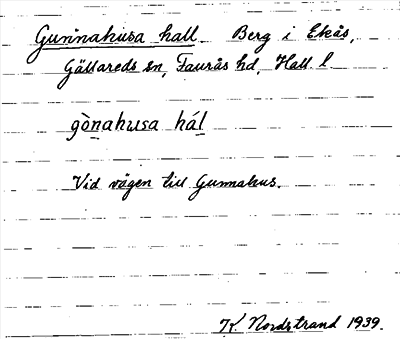 Gunnahusa hall. Berg i Ekås,
Gällareds sn, Faurås hd, Hall. l
gònahusa hál
Vid vägen till Gunnahus.
K Nordstrand 1939.